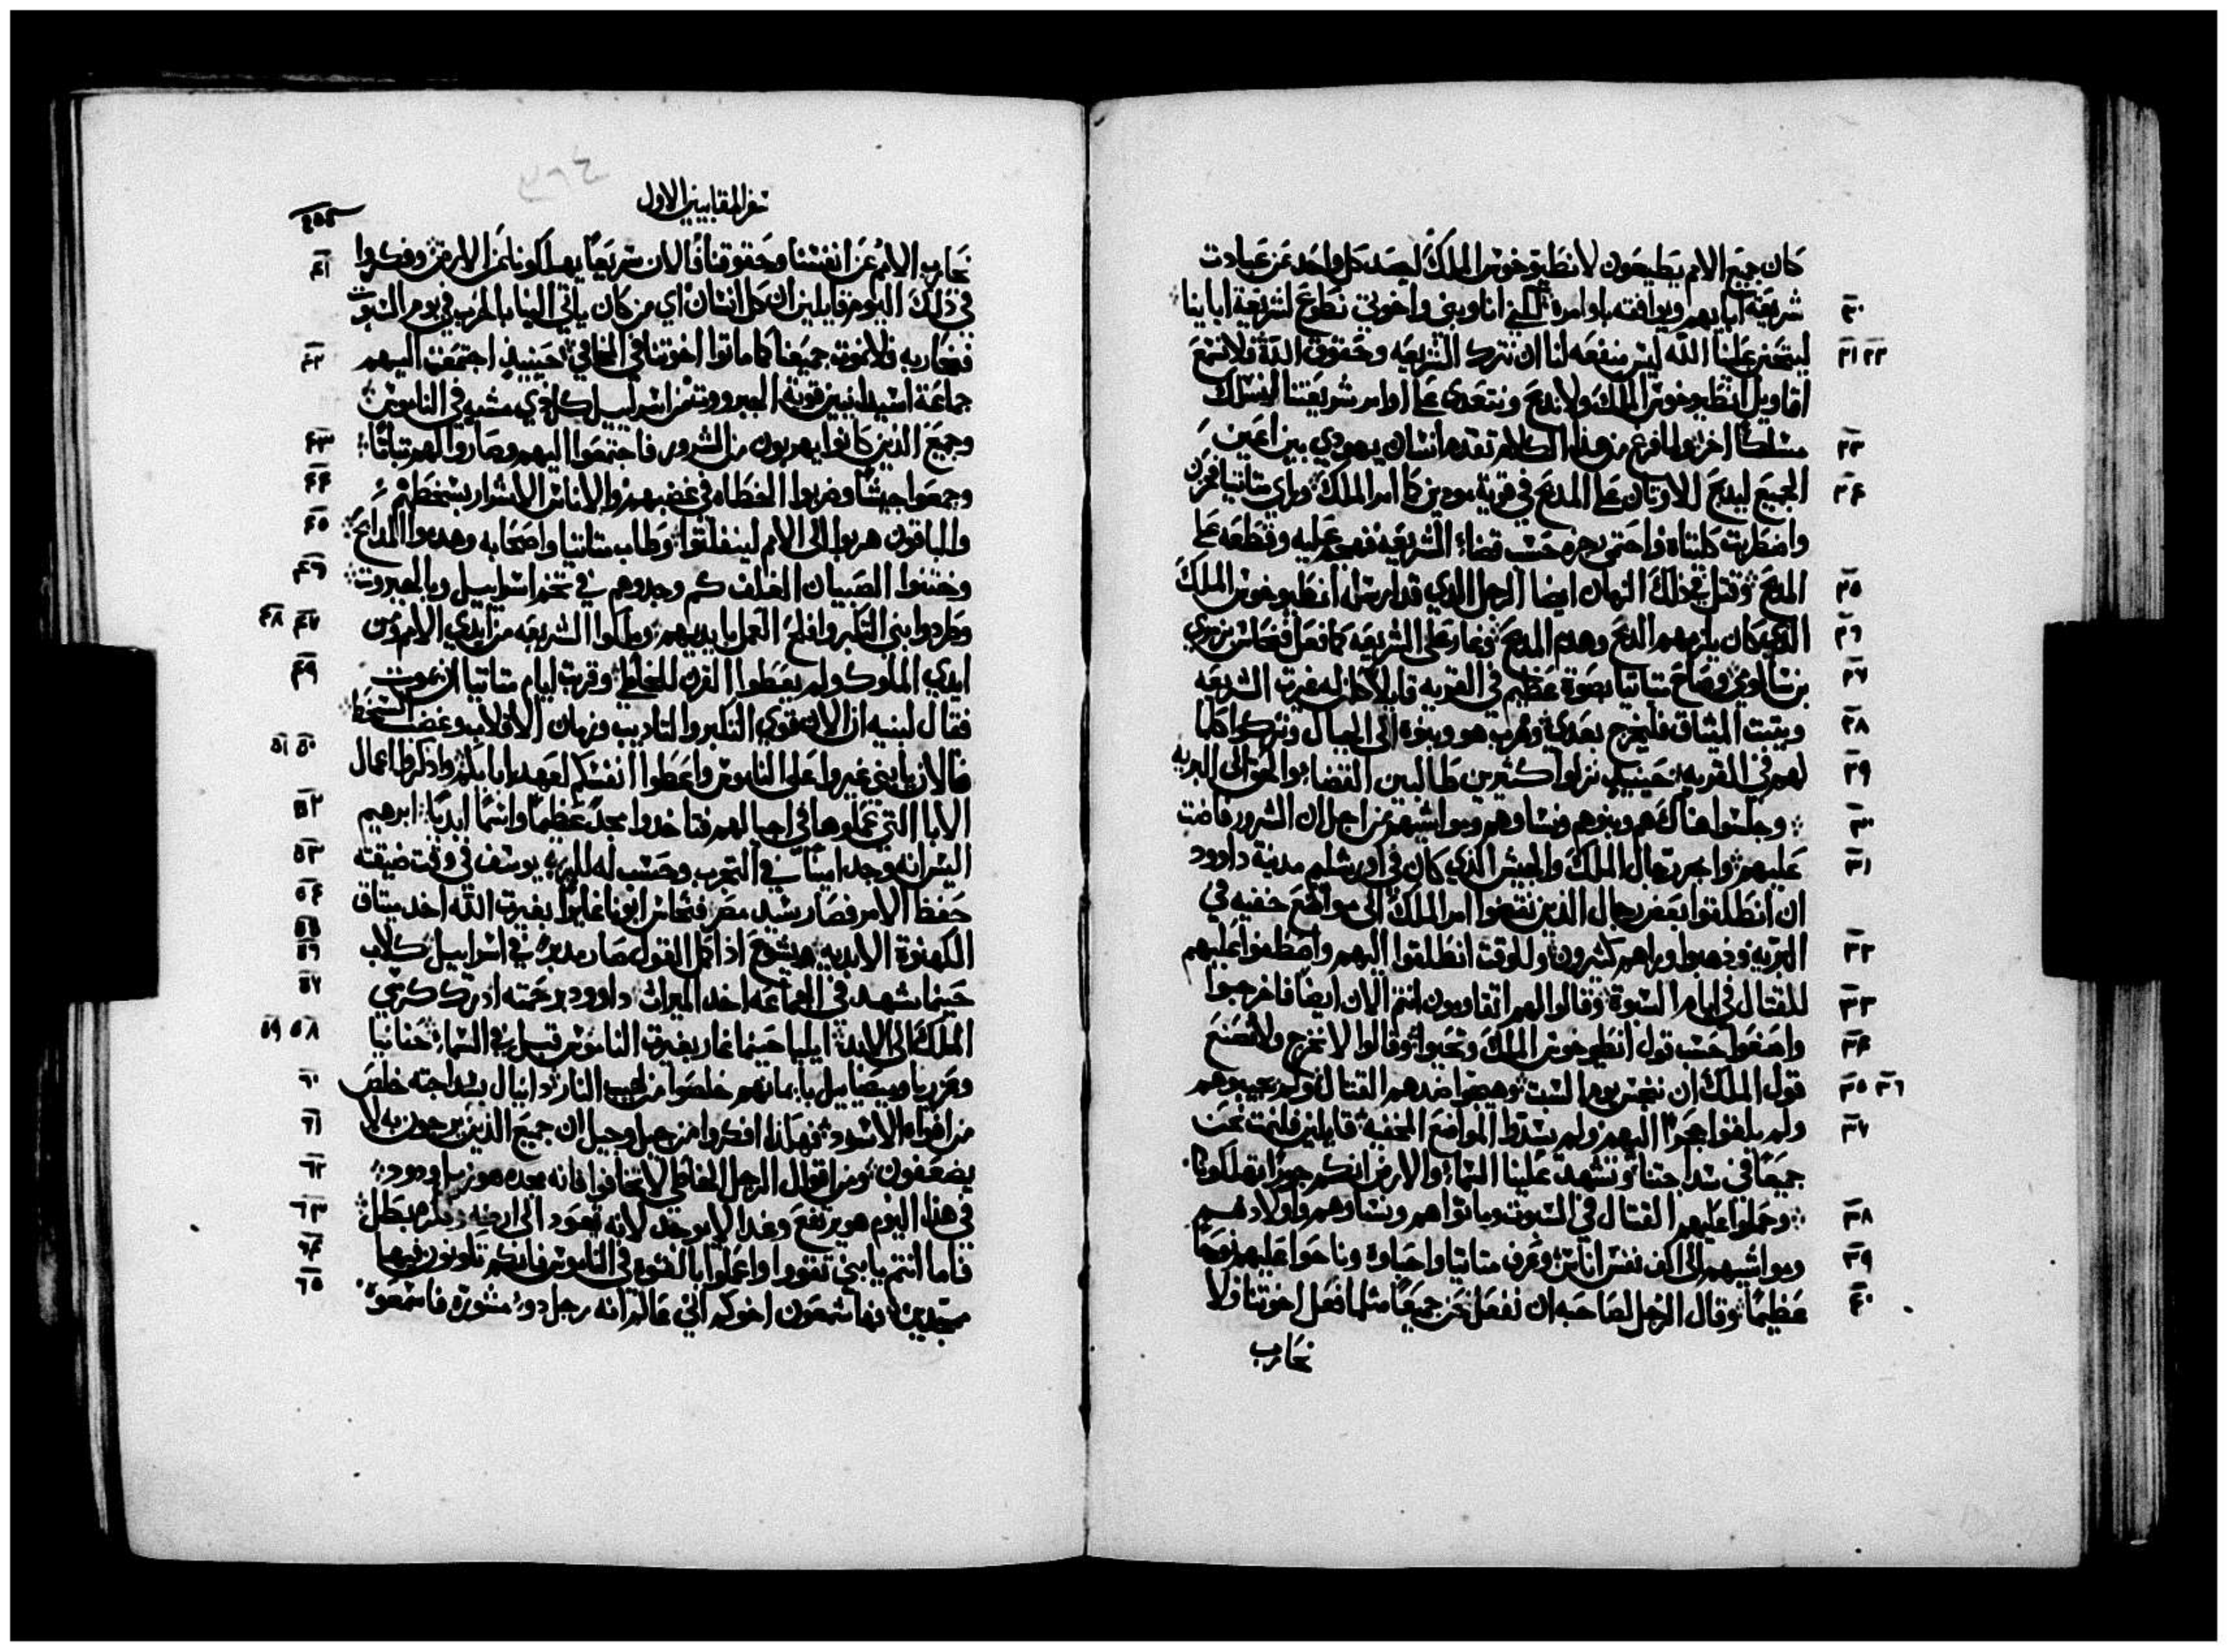 كان جميع الامم يطيعون لانطيوخوس الملك ليصد كل واحد عن عبادت
٢٠ شريعة ابايهم ويوافقه باوامره لكني انا وبني واخوتي نطوع لشريعة اباينا
٢١ ٢٢ ليتحنن علينا الله ليس منفعه لنا ان نترك الشريعه وحقوق الله فلا نسمع
اقاويل انطيوخوس الملك ولا ندبح ونتعدى على اوامر شريعتنا لنسلك
٢٣ مسلكا اخر ولما فرغ من هذا الكلام تقدم انسان يهودي بين اعين
٢٤ الجميع ليدبح للاوثان على المدبح في قرية مودين كامر الملك وراي متاتيا فحزن
واضطربت كليتاه واحتمى رجزه حسب قضاء الشريعه فهجم عليه وقطعه على
٢٥ المدبح وقتل في ذلك النهار ايضا الرجل الدي قد ارسله انطيوخوس الملك
٢٦ الدي كان يلزمهم الدبح وهدم المدبح وغار على الشريعه كما فعل فنحاس بزمري
٢٧ بن سالومي وصاح متاتيا بصوة عظيم في القريه قايلا كل من له غيرت الشريعه
٢٨ ويتبت الميثاق فليخرج بعدي وهرب هو وبنوه الى الجبال وتركوا كلما
٢٩ لهم في القريه حينيدٍ نزلوا كثيرين طالبين القضاء والحق الى البريه
٣٠ وجلسوا هناك هم وبنوهم ونساوهم ومواشيهم من اجل ان الشرور فاضت
٣١ عليهم واخبر رجال الملك والجيش الذي كان في اورشليم مدينة داوود
ان انطلقوا بعض رجال الذين نقضوا امر الملك الى مواضع خفيه في
٣٢ البريه وذهبوا وراهم كثيرون وللوقت انطلقوا اليهم واصطفوا عليهم
٣٣ للقتال في ايام السبوة وقالوا لهم اتقاومون انتم الان ايضا فاخرجوا
٣٤ واصنعوا حسب قول انطيوخوس الملك وتحيوا وقالوا لا نخرج ولا نصنع
٣٥ ٣٦ قول الملك ان ننجس يوم السبت وهيجوا ضدهم القتال ولم يجيبوهم
٣٧ ولم يلقوا حجرًا اليهم ولم يسدوا المواضع الخفيه قايلين فلنمت نحن
جميعًا في سداجتنا وتشهد علينا السماء والارض انكم جورًا تهلكونا
٣٨ وحملوا عليهم القتال في السبوت وماتوا هم ونساوهم واولادهم
٣٩ ومواشيهم الى الف نفس اناس وعرف متاتيا واحباوه وناحوا عليهم نوحًا
٤٠ عظيمًا وقال الرجل لصاحبه ان نفعل نحن جميعًا مثلما فعل اخوتنا ولا
نحارب
سفر المقابيين الاول
نحارب الامم عن انفسنا وحقوقنا فالان سريعًا يهلكونا من الارض وفكروا ٤١
في ذلك اليوم قايلين ان كل انسان اي من كان ياتي الينا بالحرب في يوم السبوت
فنحاربه فلا نموت جميعنا كما ماتوا اخوتنا في المخافي حينيذٍ اجتمعت اليهم ٤٢
جماعة اسيدانيين قوية الجبروت من اسراييل كل دي مشيه في الناموس
وجميع الذين كانوا يهربون من الشرور فاجتمعوا اليهم وصاروا لهم تباتًا ٤٣
وجمعوا جيشًا وضربوا الخطاه في غضبهم والاناس الاشرار بسخطهم ٤٤
والباقون هربوا الى الامم لينفلتوا وطاب متاتيا واصحابه وهدموا المدابح ٤٥
وختنوا الصبيان الغلف كم وجدوهم في تخم اسراييل وبالجبروت ٤٦
وطردوا بني التكبر وافلح العمل بايديهم وملكوا الشريعه من ايدي الامم ومن ٤٧ ٤٨
ايدي الملوك ولم يعطوا القرن للخاطي وقربت ايام متاتيا ان يموت ٤٩
فقال لبنيه ان الان تقوي التكبر والتاديب وزمان الانقلاب وغضب السخط
فالان يا بني غيروا على الناموس واعطوا انفسكم لعهد ابايكم واذكروا اعمال ٥٠ ٥١
الابا التي عملوها في اجيالهم فتاخدوا مجدًا عظيمًا واسمًا ابديًا ابرهيم ٥٢
اليس انه وجد امينًا في التجرب وحسب له للبر يوسف في وقت ضيقته ٥٣
حفظ الامر فصار سيد مصر فنحاس ابونا غايرًا بغيرت الله اخد ميتاق ٥٤
الكهنوة الابديه يشوع اذ اكمل القول صار مدبرًا في اسراييل كلاب ٥٥ ٥٦
حينما شهد في الجماعه اخد الميراث داوود برحمته ادرك كرسي ٥٧
الملك الى الابد ايليا حينما غار بغيرت الناموس قبل في السماء حنانيا ٥٨ ٥٩
وعزريا وميصاييل بايمانهم خلصوا من لهيب النار دانيال بسداجته خلص ٦٠
من افواه الاسود فهكذا افكروا من جيل وجيل ان جميع الذين يرجون به لا ٦١
يضعفون ومن اقوال الرجل الخاطي لا تخافوا فانه مجده هو زبل ودود ٦٢
في هذا اليوم هو يرتفع وغدا لا يوجد لانه تعود الى ارضه وفكره يبطل ٦٣
فاما انتم يا بني تقووا واعملوا بالقوه في الناموس فانكم تكونون فيها ٦٤
ممجدين فها شمعون اخوكم اني عالم انه رجل دو مشورة فاسمعوه ٦٥